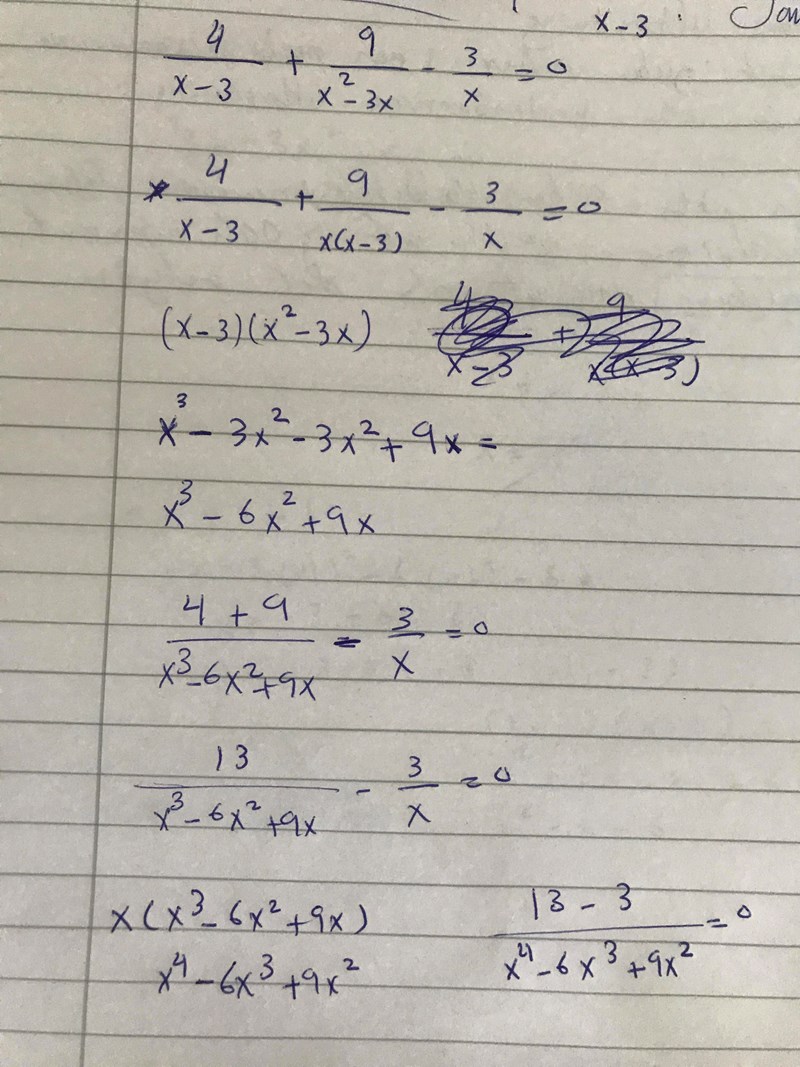 x-3 .
4/(x-3) + 9/(x²-3x) - 3/x = 0
4/(x-3) + 9/(x(x-3)) - 3/x = 0
(x-3)(x²-3x) 4/(x-3) + 9/(x(x-3))
x³ - 3x² - 3x² + 9x =
x³ - 6x² + 9x
(4 + 9)/(x³-6x²+9x) - 3/x = 0
13/(x³-6x²+9x) - 3/x = 0
x(x³-6x²+9x) (13 - 3)/(x⁴-6x³+9x²) = 0
x⁴-6x³+9x²